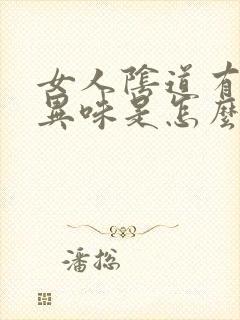 女人陰道有
異味是怎麼
潘总